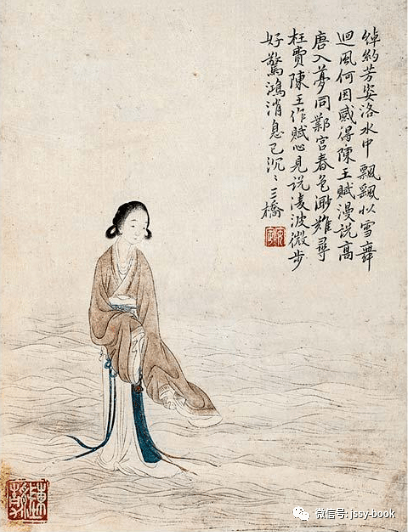 綽約芳姿洛水中飄颻似雪舞
迴風何因感得陳王賦漫說高
唐入夢同鄴宮春色渺難尋
枉費陳王作賦心見說凌波微步
好驚鴻消息已沉〻三橋
微信号: jssy-book